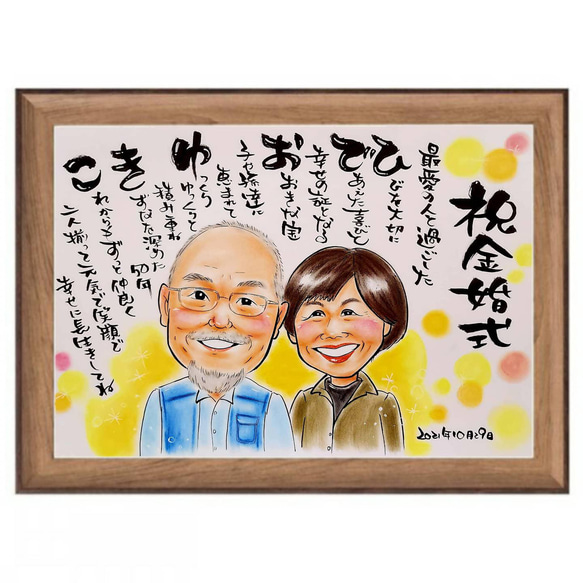 祝金婚式
最愛の人と過ごした
ひびを大切に
であえた喜びと
幸せの証となる
おおきな宝
子や孫達に
恵まれて
ゆっくり
ゆっくりと
積み重ね
きずなた深めた
50年
これからもずっと仲良く
二人揃って元気で笑顔で
幸せに長生きしてね
2021年10月29日